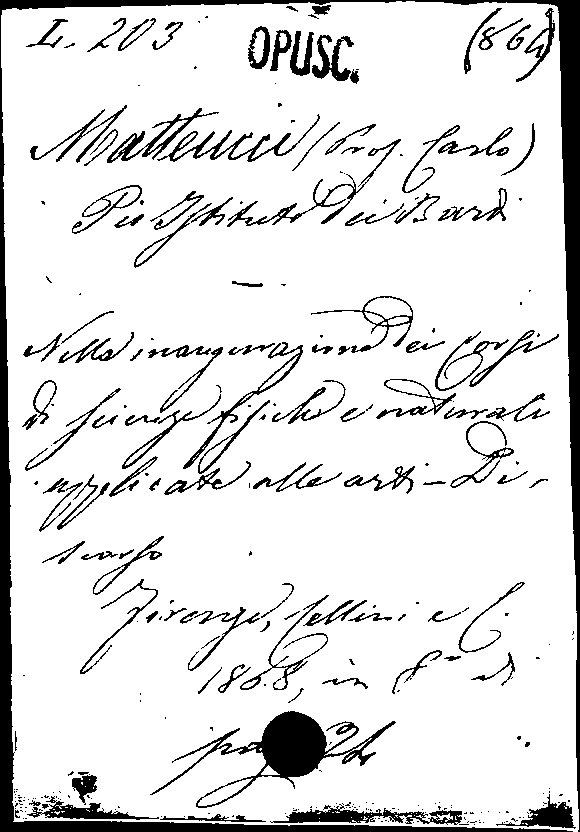 L. 203 OPUSC. (864)
Matteucci (Prof. Carlo)
Pio Istituto dei Bardi
—
Nella inaugurazione dei corsi
di scienze fisiche e naturali
applicate alle arti - Di-
scorso
Firenze, Cellini e C.
1868, in 8º di
pag. 24